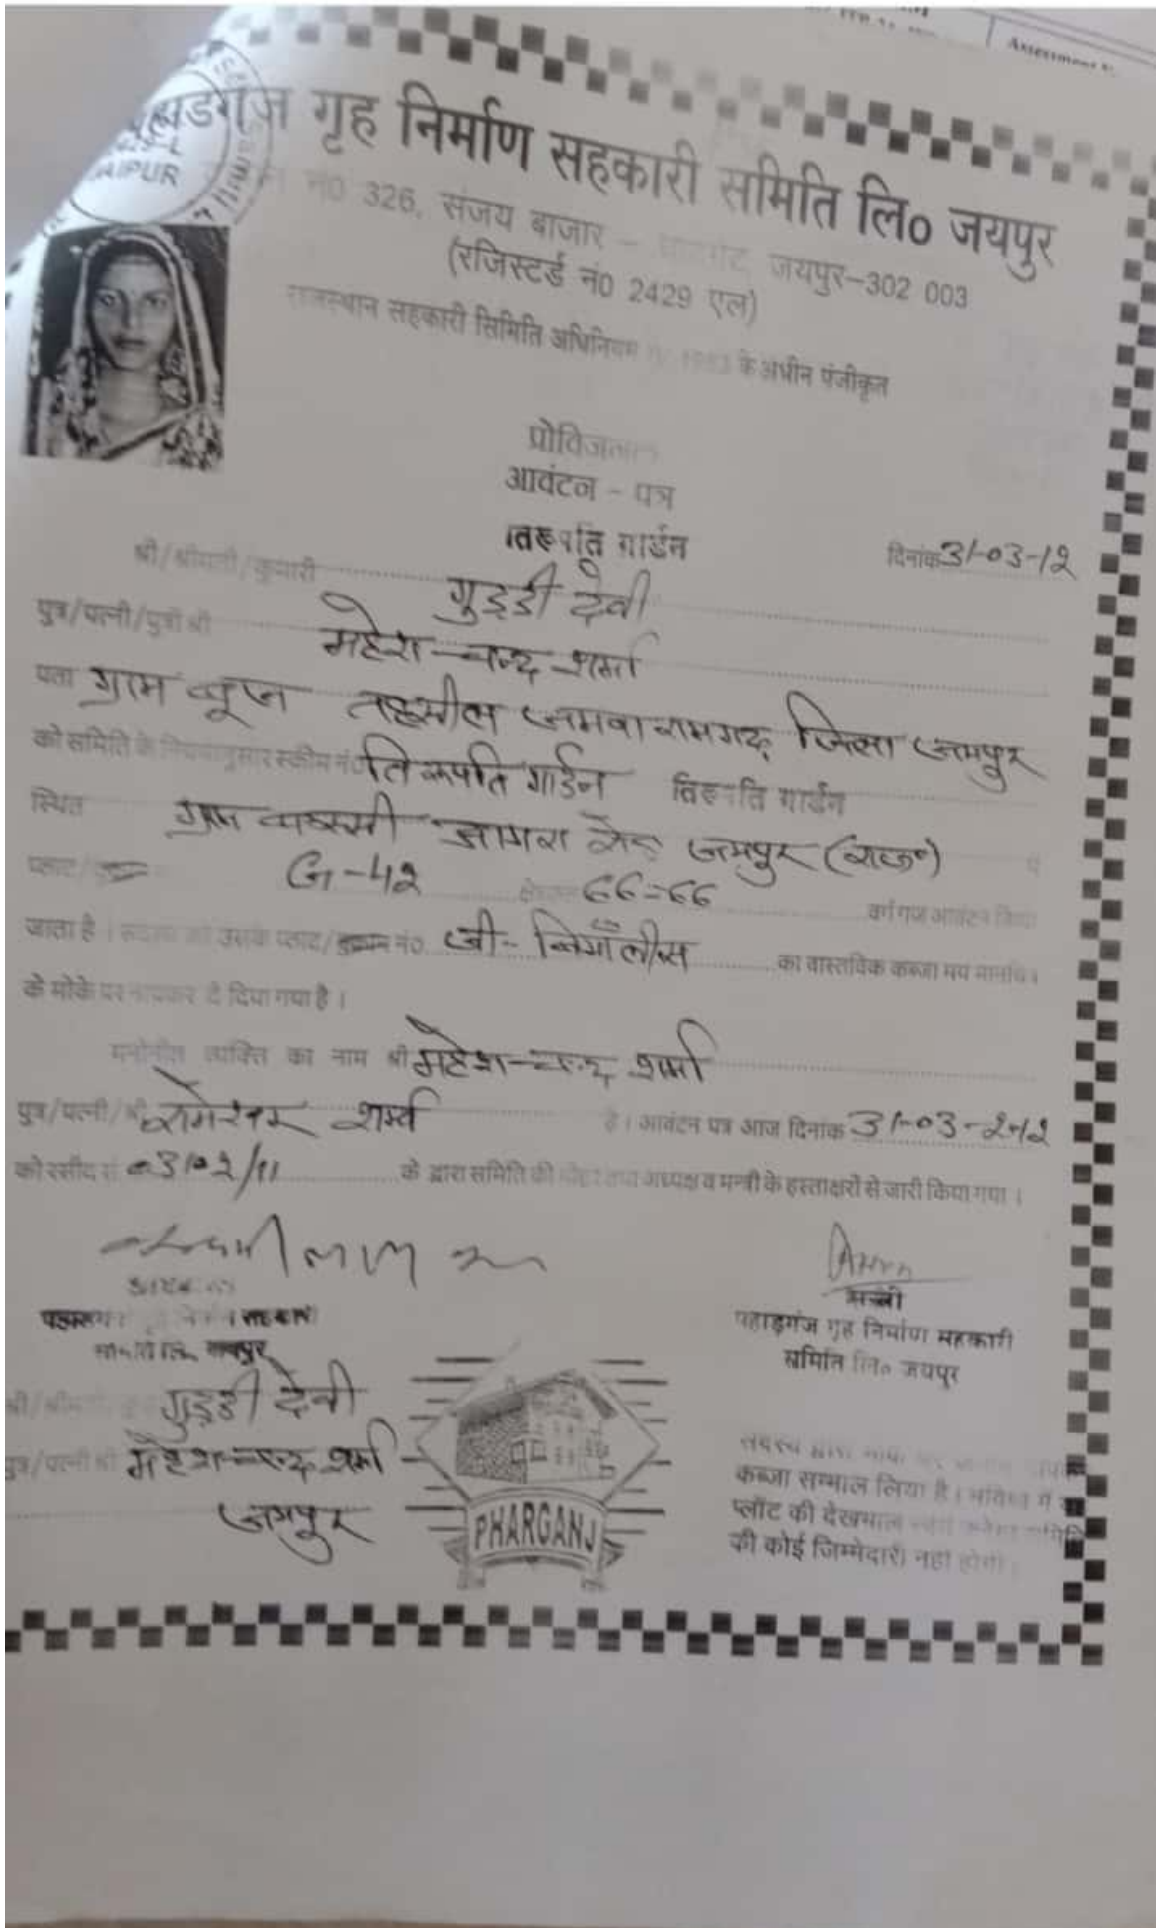 Assessment
गृह निर्माण सहकारी समिति लि० जयपुर
JAIPUR
नं0 326, संजय बाजार – जयपुर-302 003
(रजिस्टर्ड नं0 2429 एल)
राजस्थान सहकारी सिमिति अधिनियम के अधीन पंजीकृत
आवंटन - पत्र
तिरूपति गार्डन
दिनांक 31-03-12
श्री/श्रीमती/कुमारी गुड्डी देवी
पुत्र/पत्नी/पुत्री श्री महेश चन्द शर्मा
पता ग्राम तहसील जमवा रामगढ़ जिला जयपुर
को समिति के नियमानुसार स्कीम नं० तिरूपति गार्डन तिरूपति गार्डन
स्थित ग्राम आगरा रोड जयपुर (राज०)
प्लाट/ G-42 66=66 वर्ग गज आवंटन किया
जाता है । सदस्य को उसके प्लाट/ नं० जी- का वास्तविक कब्जा मय मानचित्र
के मोके पर नापकर दे दिया गया है ।
मनोनीत व्यक्ति का नाम श्री महेश चन्द शर्मा
पुत्र/पत्नी/श्री शर्मा है । आवंटन पत्र आज दिनांक 31-03-2012
को रसीद सं के द्वारा समिति की मोहर तथा अध्यक्ष व मन्त्री के हस्ताक्षरों से जारी किया गया ।
मन्त्री
पहाड़गंज गृह निर्माण सहकारी
समिति लि० जयपुर
गुड्डी देवी
पुत्र/पत्नी श्री महेश चन्द शर्मा
जयपुर
PHARGANJ
कब्जा सम्भाल लिया है । भविष्य में
प्लॉट की देखभाल
की कोई जिम्मेदारी नहीं होगी ।